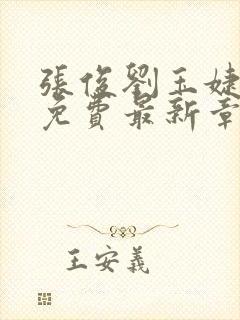 張俊劉玉婕
免費最新章
王安義